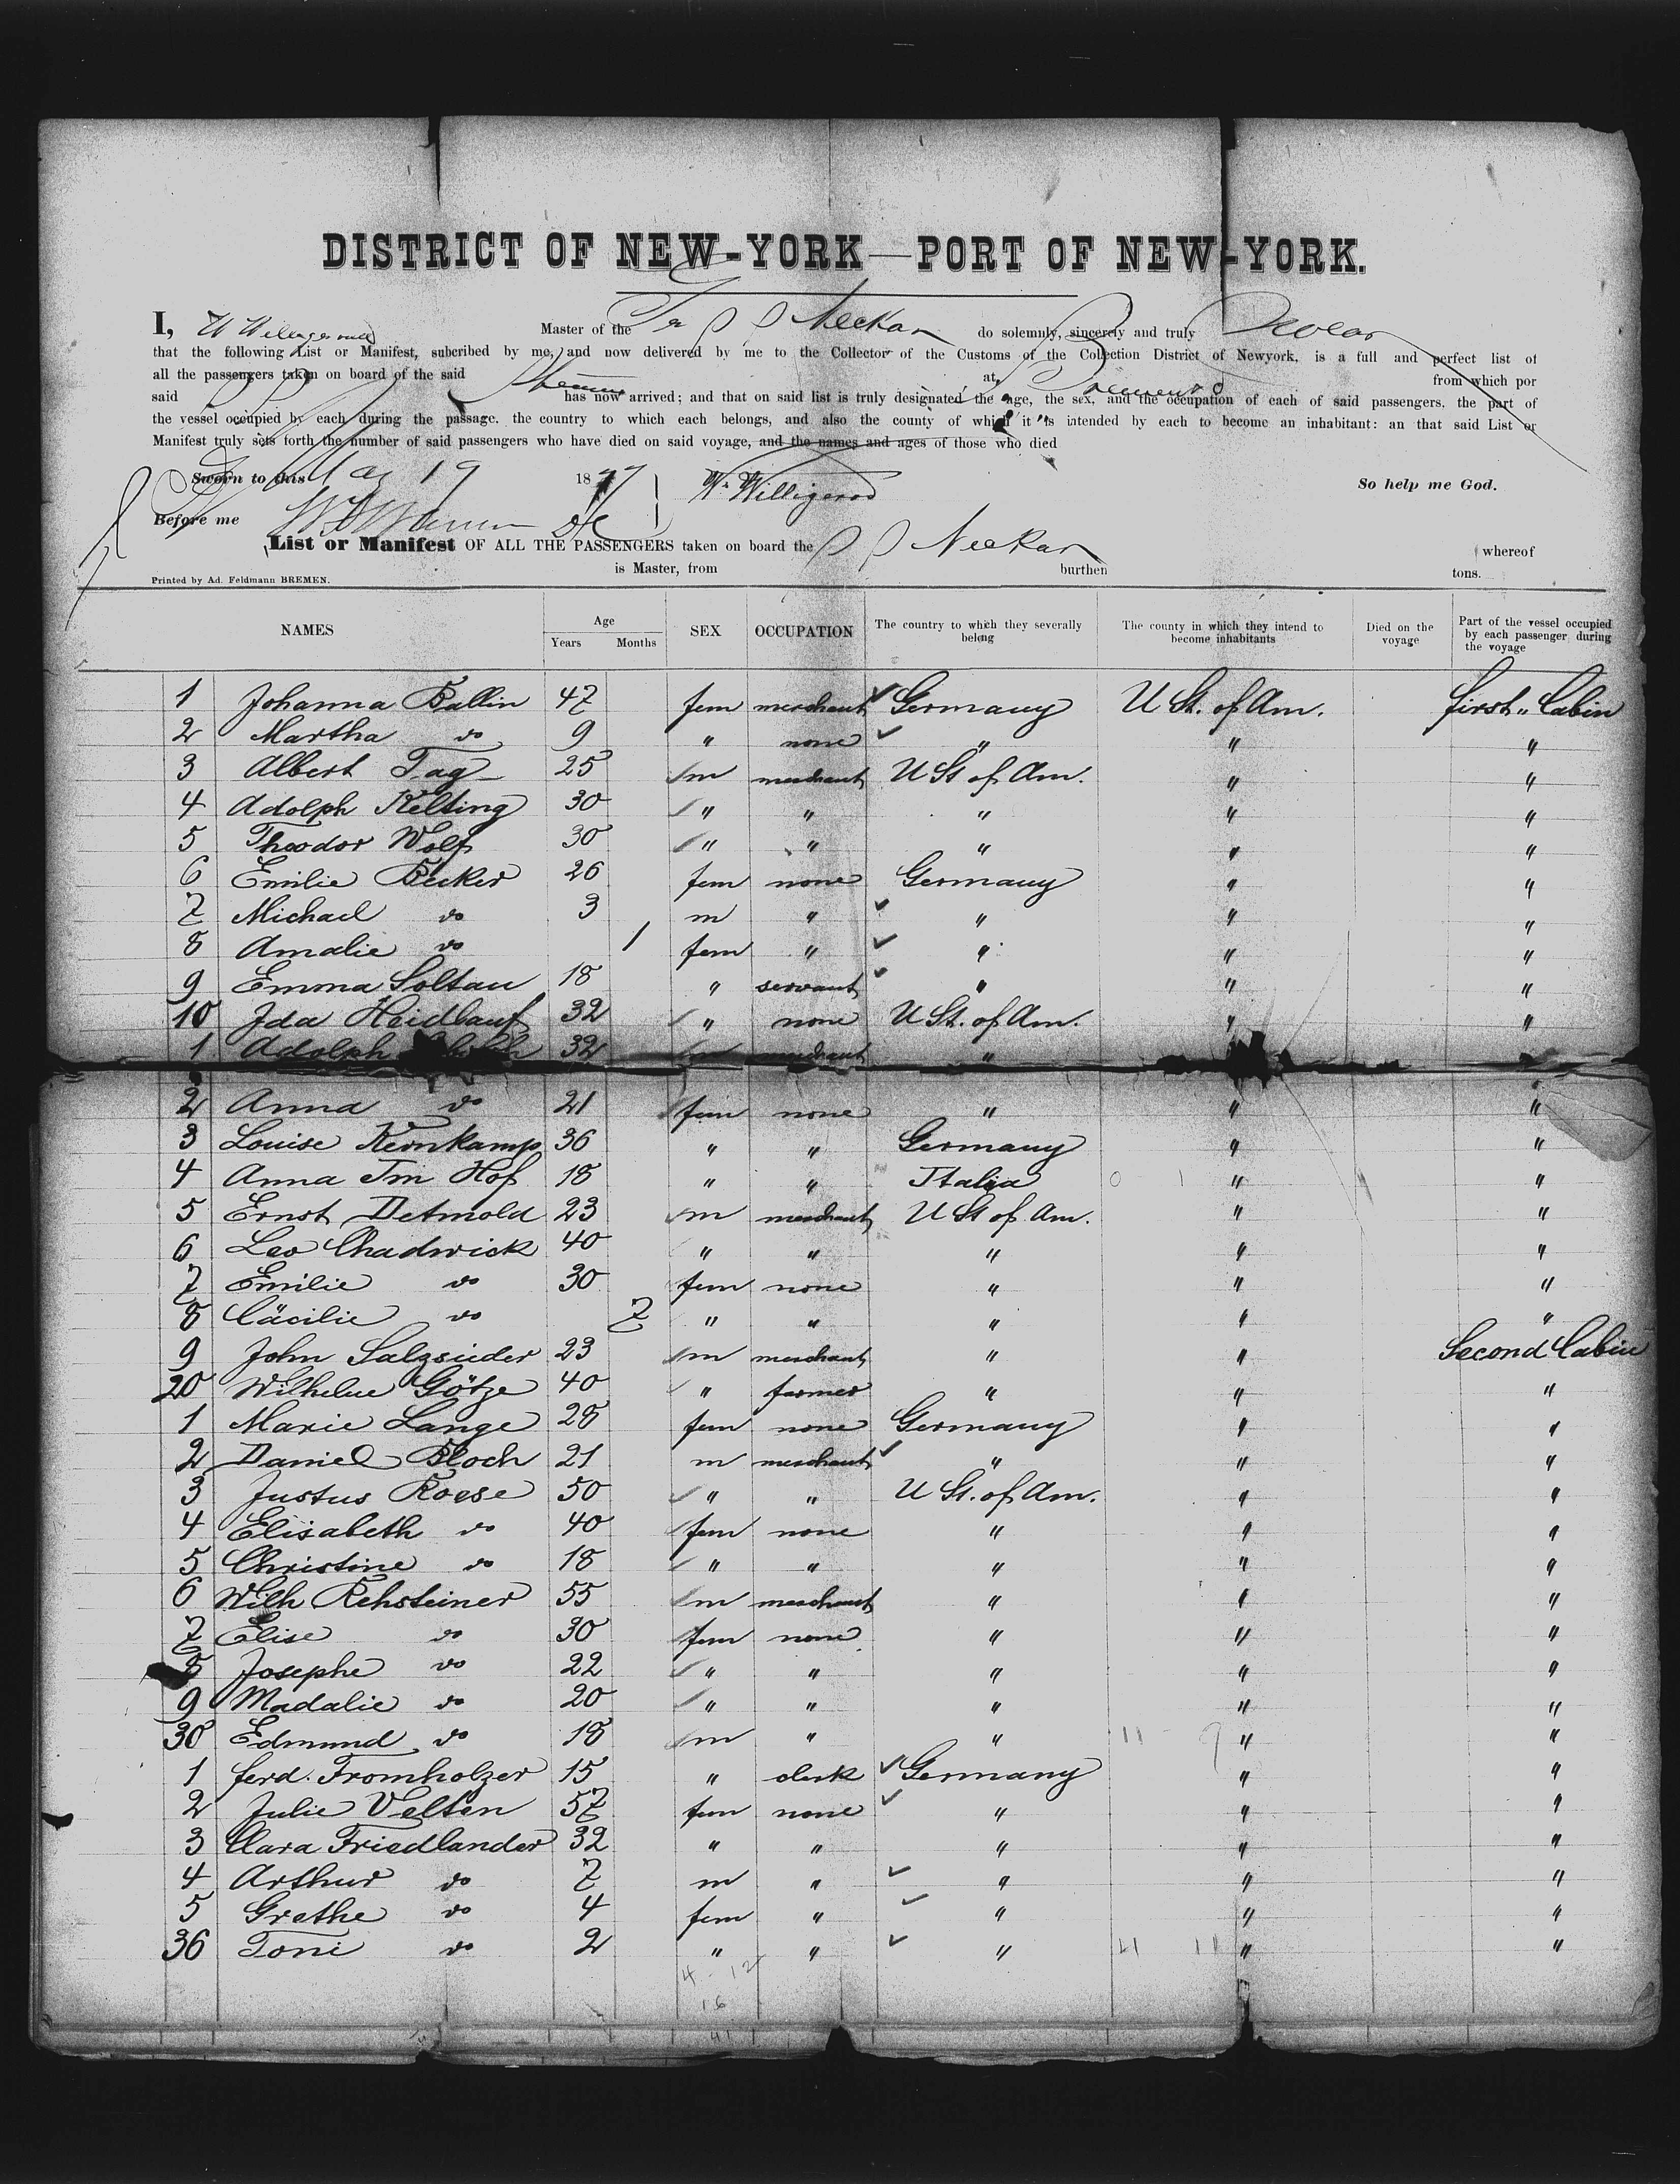 DISTRICT OF NEW-YORK—PORT OF NEW-YORK.
I, W Willigerod Master of the Neckar do solemnly, sincerely and truly Swear
that the following List or Manifest, subcribed by me, and now delivered by me to the Collector of the Customs of the Collection District of Newyork, is a full and perfect list of
all the passengers taken on board of the said at Bremen from which por
said Steamer has now arrived; and that on said list is truly designated the age, the sex, and the occupation of each of said passengers. the part of
the vessel occupied by each during the passage. the country to which each belongs, and also the county of which it is intended by each to become an inhabitant: an that said List or
Manifest truly sets forth the number of said passengers who have died on said voyage, and the names and ages of those who died
Sworn to this May 19 1877 W. Willigerod So help me God.
Before me
List or Manifest OF ALL THE PASSENGERS taken on board the S S Neckar whereof
is Master, from burthen tons.
Printed by Ad. Feldmann BREMEN.
NAMES Age Years Months SEX OCCUPATION The country to which they severally belong The county in which they intend to become inhabitants Died on the voyage Part of the vessel occupied by each passenger during the voyage
1 Johanna Ballin 47 fem merchant Germany U St. of Am. first " Cabin
2 Martha do 9 " none " " "
3 Albert Tag 25 m merchant U St of Am. " "
4 Adolph Kelting 30 " " " " "
5 Theodor Wolf 30 " " " " "
6 Emilie Becker 26 fem none Germany " "
7 Michael do 3 m " " " "
8 Amalie do 1 fem " " " "
9 Emma Soltau 18 " servant " " "
10 Ida Heidlauf 32 " none U St. of Am. " "
1 Adolph 32 m merchant "
2 Anna do 21 fem none " " "
3 Louise Kernkamp 36 " " Germany " "
4 Anna Im Hof 18 " " Italia " "
5 Ernst Detmold 23 m merchant U St of Am. " "
6 Leo Chadwick 40 " " " " "
7 Emilie do 30 fem none " " "
8 Cäcilie do 7 " " " " "
9 John Salzsieder 23 m merchant " " Second Cabin
20 Wilhelm Götze 40 " farmer " " "
1 Marie Lange 28 fem none Germany " "
2 Daniel Bloch 21 m merchant " " "
3 Justus Roese 50 " " U St. of Am. " "
4 Elisabeth do 40 fem none " " "
5 Christine do 18 " " " " "
6 Wilh Rehsteiner 55 m merchant " " "
7 Elise do 30 fem none " " "
8 Josephe do 22 " " " " "
9 Madalie do 20 " " " " "
30 Edmund do 18 m " " " "
1 ferd. Fromholzer 15 " clerk Germany " "
2 Julie Velten 57 fem none " " "
3 Clara Friedlander 32 " " " " "
4 Arthur do 7 m " " " "
5 Grethe do 4 fem " " " "
36 Toni do 2 " " " " "
4 - 12
16